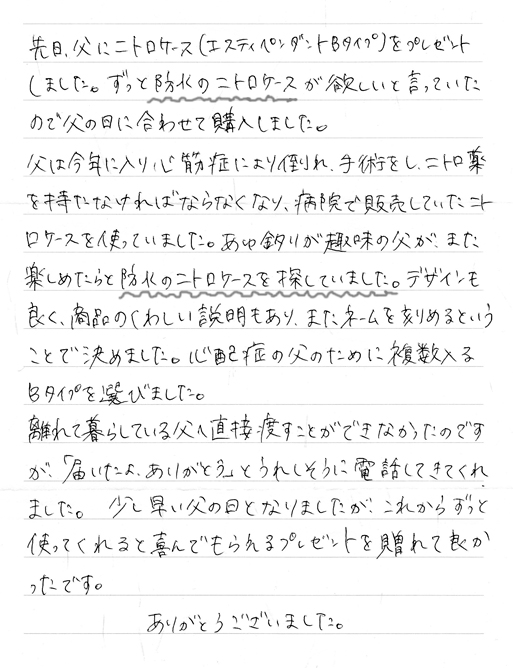 先日、父にニトロケース(エスティペンダントBタイプ)をプレゼント
しました。ずっと防水のニトロケースが欲しいと言っていた
ので父の日に合わせて購入しました。
父は今年に入り心筋症により倒れ、手術をし、ニトロ薬
を持たなければならなくなり、病院で販売していたニト
ロケースを使っていました。あゆ釣りが趣味の父が、また
楽しめたらと防水のニトロケースを探していました。デザインも
良く、商品のくわしい説明もあり、またネームを刻めるという
ことで決めました。心配症の父のために複数入る
Bタイプを選びました。
離れて暮らしている父へ直接渡すことができなかったのです
が、「届いたよ、ありがとう」とうれしそうに電話してきてくれ
ました。 少し早い父の日となりましたが、これからずっと
使ってくれると喜んでもらえるプレゼントを贈れて良か
ったです。
ありがとうございました。